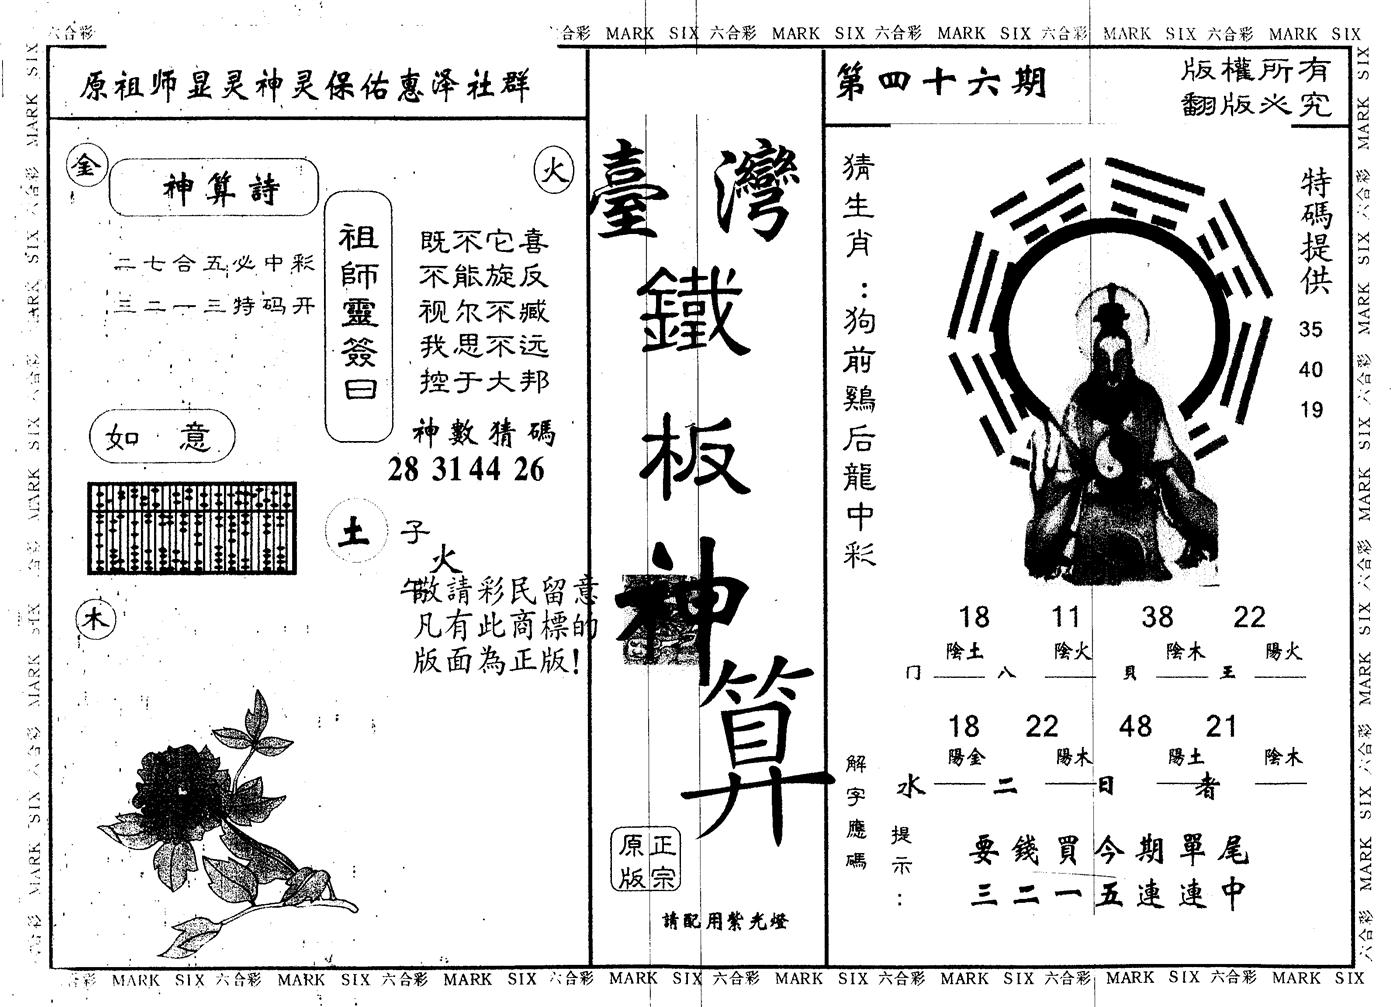 六合彩 六合彩 MARK SIX 六合彩 MARK SIX 六合彩 MARK SIX 六合彩 MARK SIX 六合彩 MARK SIX
原祖师显灵神灵保佑惠泽社群
金
神算詩
火
二七合五必中彩
三二一三特码开
祖師靈簽曰
既不它喜
不能旋反
视尔不臧
我思不远
控于大邦
神數猜碼
28 31 44 26
如意
土
子
火
午
木
敬請彩民留意
凡有此商標的
版面為正版!
臺灣
鐵板神算
原版正宗
請配用紫光燈
第四十六期
版權所有
翻版必究
猜生肖:狗前鷄后龍中彩
特碼提供
35
40
19
18 11 38 22
陰土 陰火 陰木 陽火
门 八 貝 王
18 22 48 21
陽金 陽木 陽土 陰木
水 二 日 者
解字應碼
提示:
要錢買今期單尾
三二一五連連中
六合彩 MARK SIX 六合彩 MARK SIX 六合彩 MARK SIX 六合彩 MARK SIX 六合彩 MARK SIX 六合彩 MARK SIX 六合彩 MARK SIX 六合彩 MARK SIX